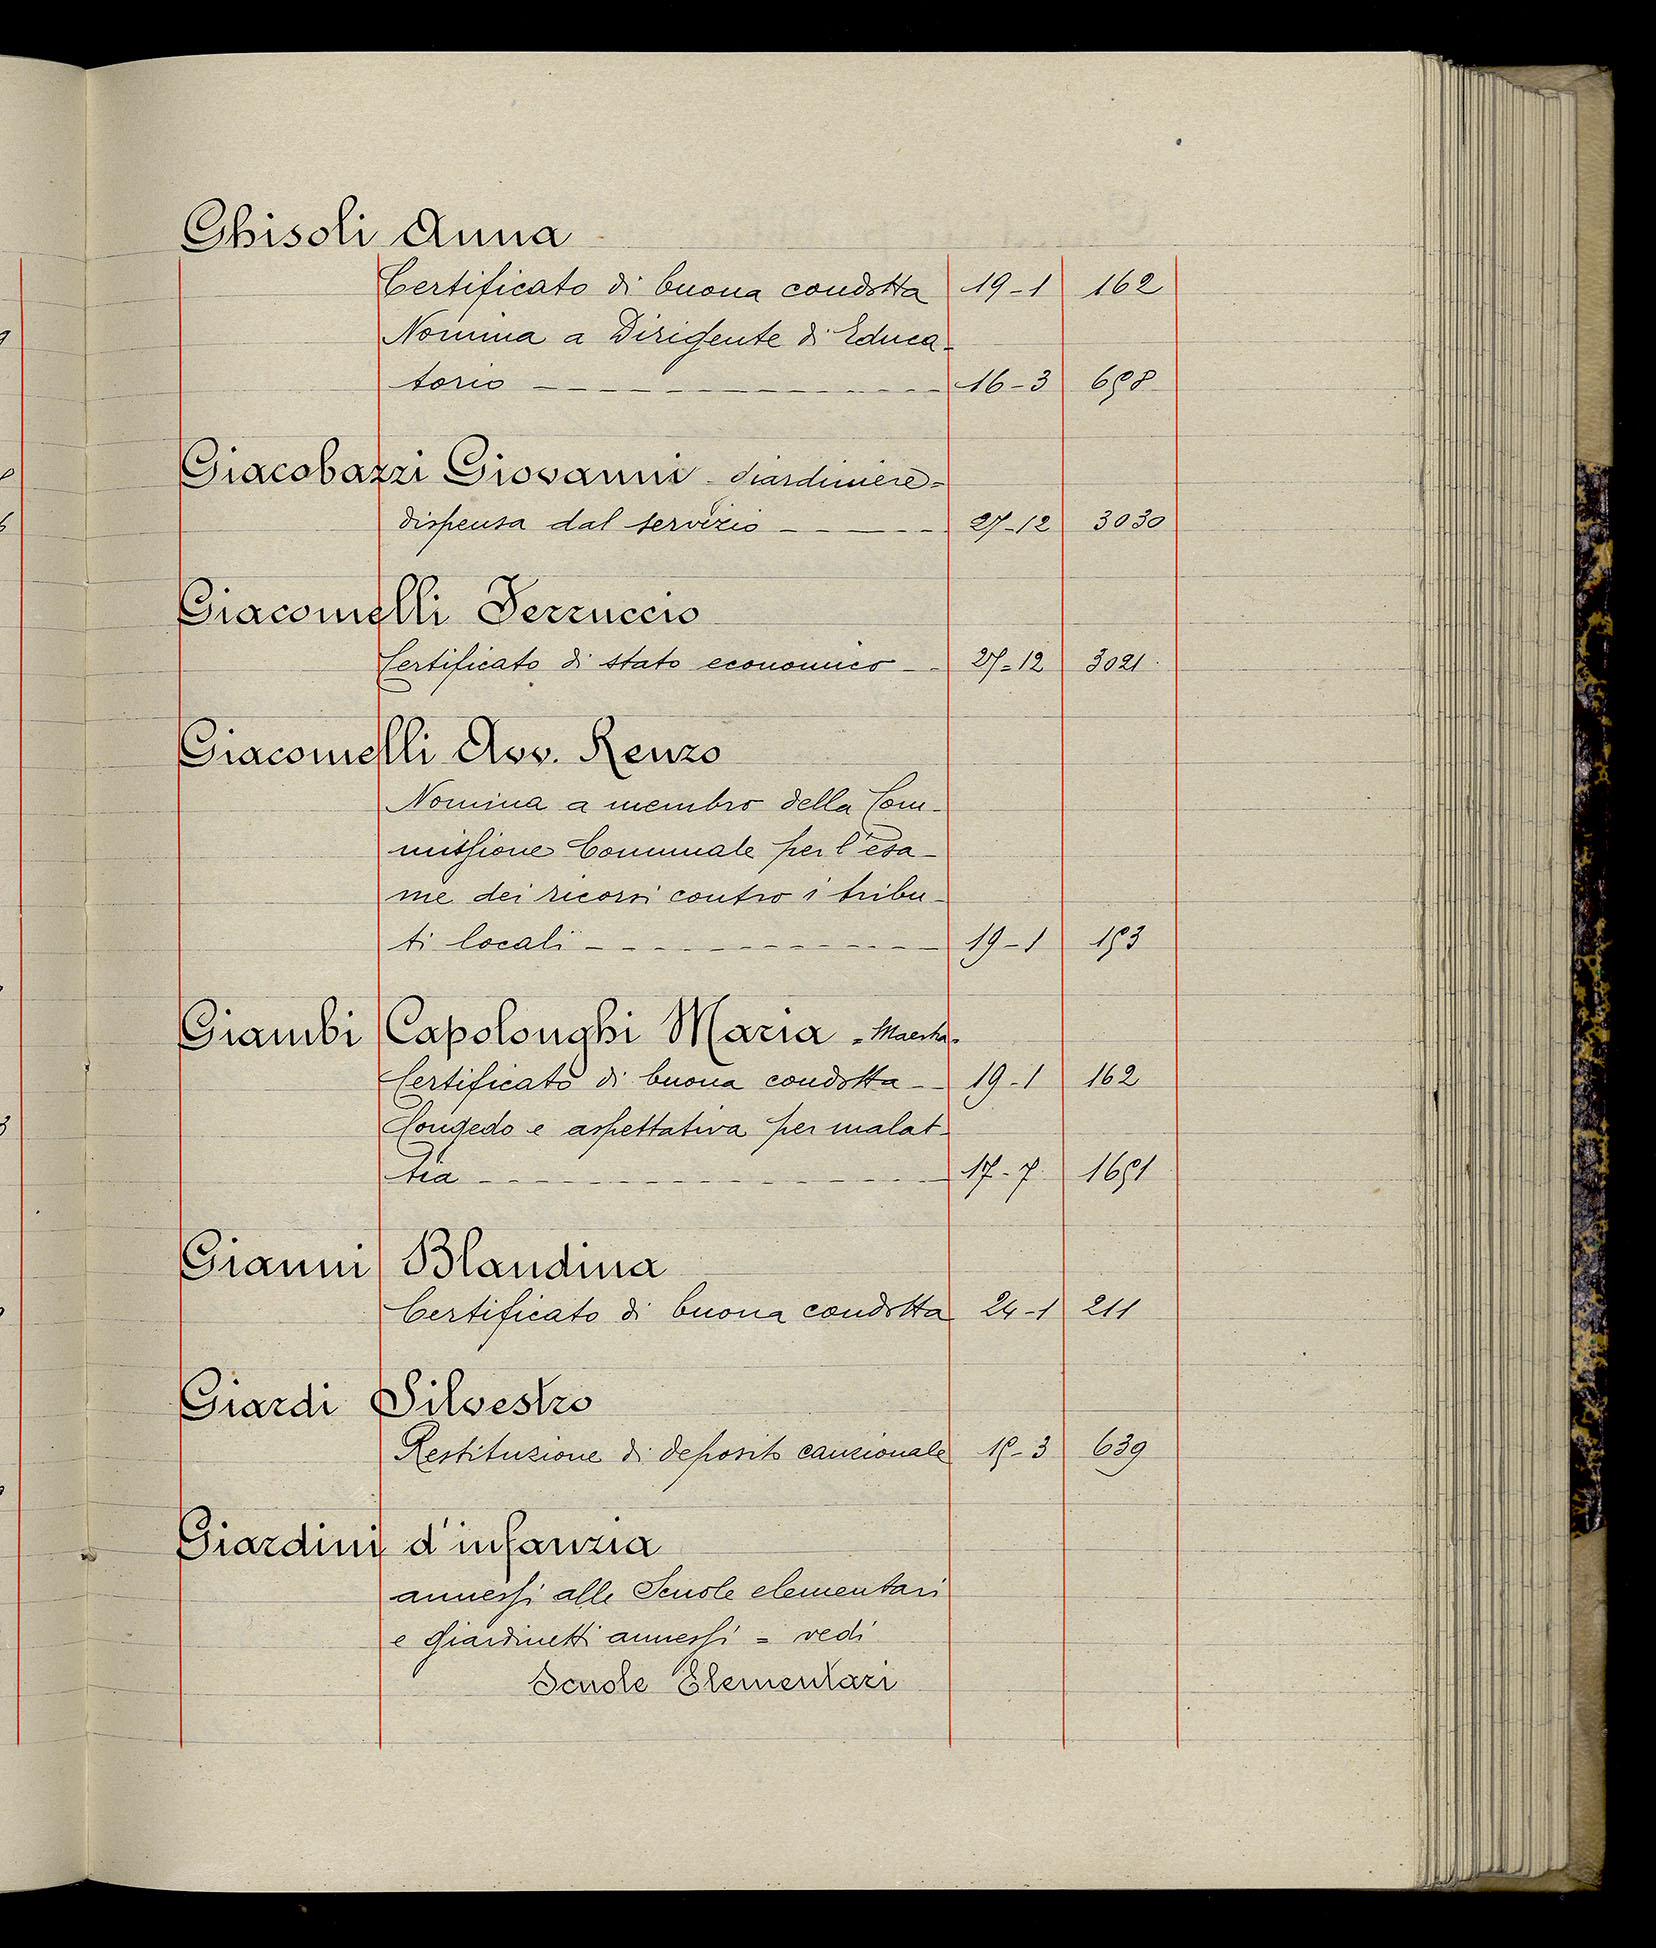 Ghisoli Anna
Certificato di buona condotta 19-1 162
Nomina a Dirigente di Educa-
torio 16-3 658
Giacobazzi Giovanni - Giardiniere-
dispensa dal servizio 27-12 3030
Giacomelli Ferruccio
Certificato di stato economico 27-12 3021
Giacomelli Avv. Renzo
Nomina a membro della Com-
missione Comunale per l'esa-
me dei ricorsi contro i tribu-
ti locali 19-1 153
Giambi Capolonghi Maria - Maestra-
Certificato di buona condotta 19-1 162
Congedo e aspettativa per malat-
tia 17-7 1651
Gianni Blandina
Certificato di buona condotta 24-1 211
Giardi Silvestro
Restituzione di deposito cauzionale 15-3 639
Giardini d'infanzia
annessi alle Scuole elementari
e Giardinetti annessi = vedi
Scuole Elementari